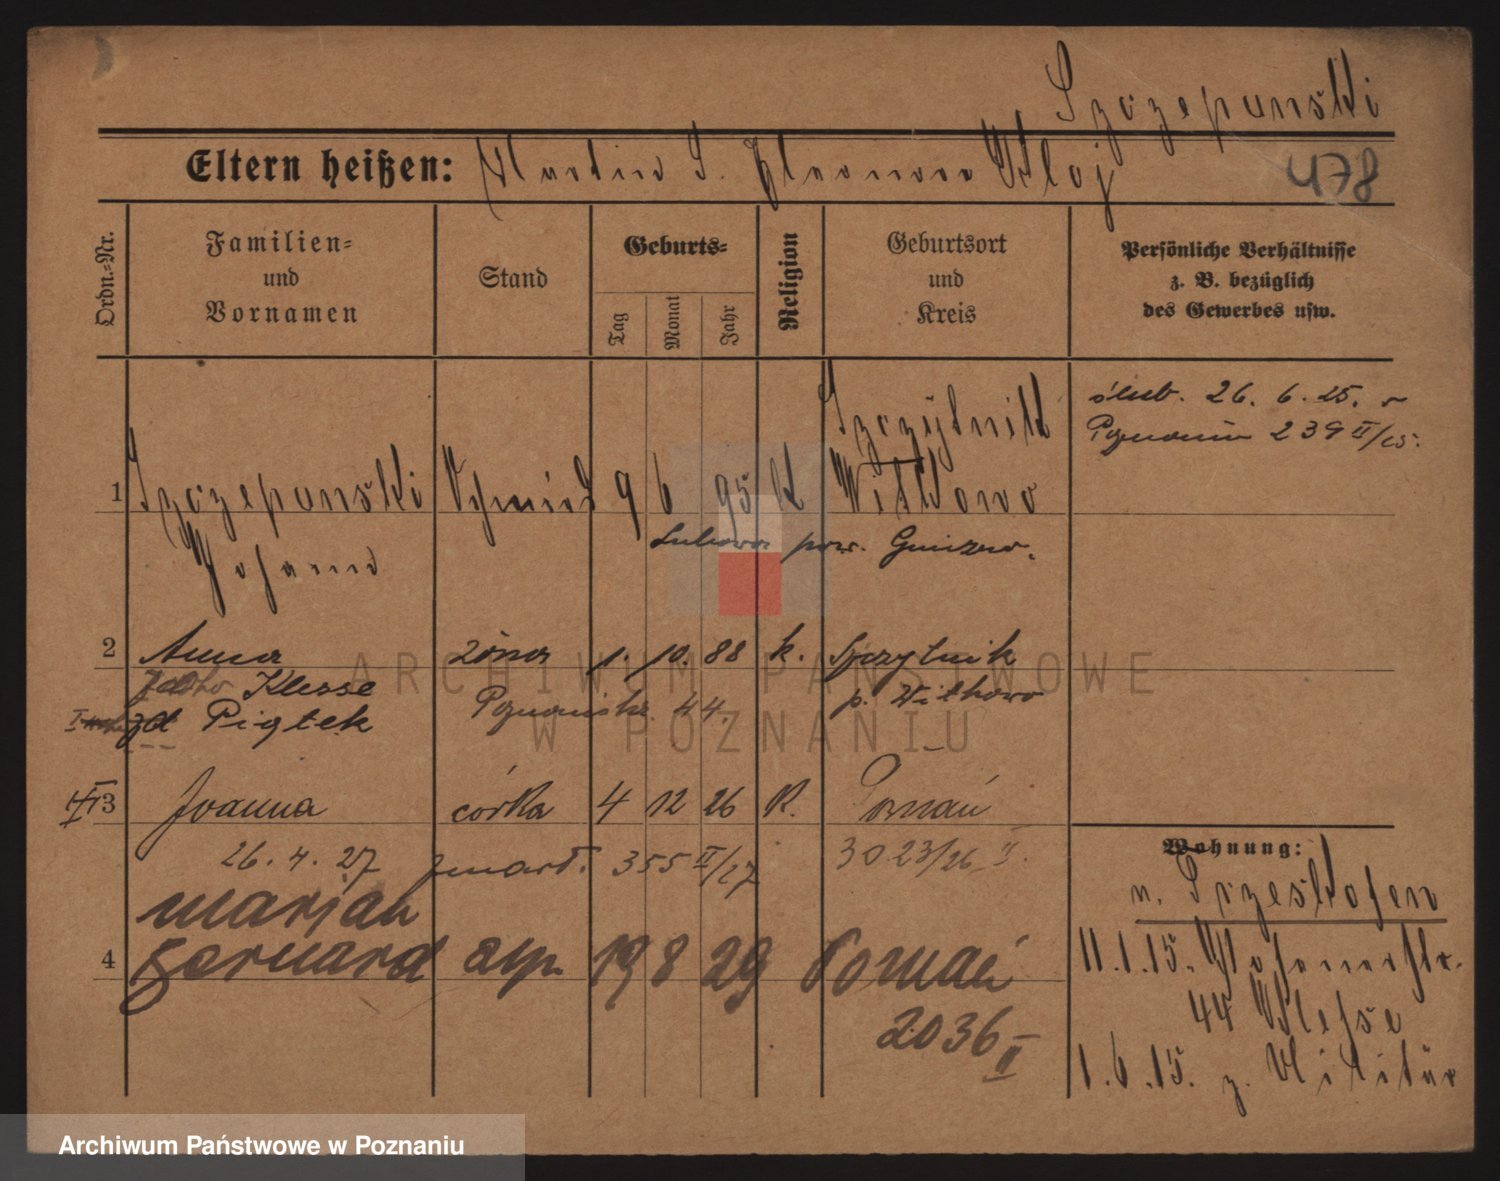 Szczepanski
Eltern heißen: Martin S. Eleonora Kloj
478
Ordn.-Nr.
Familien-
und
Vornamen
Stand
Geburts-
Tag
Monat
Jahr
Religion
Geburtsort
und
Kreis
Persönliche Verhältnisse
z. B. bezüglich
des Gewerbes usw.
ślub. 26. 6. 25. w
Poznaniu 239 II/25.
Szczytnik
1 Szczepanski Schmied 9 6 95 K Witkowo
Johann
pow. Gniezno.
2 Anna żona 1. 10. 88 k. Szczytnik
Klesse
p. Witkowo
zd Piątek Poznańska 44.
3 Joanna córka 4 12 26 K. Poznań
26. 4. 27 zmarł. 355 II/27 3023/26 II.
Marjan
4 Bernard syn 19 8 29 Poznań
2036 II
Wohnung:
n. Wrzeskofen
11.1.15. Posenerstr.
44 Klesse
1.6.15. z. Militär
ARCHIWUM PAŃSTWOWE
W POZNANIU
Archiwum Państwowe w Poznaniu